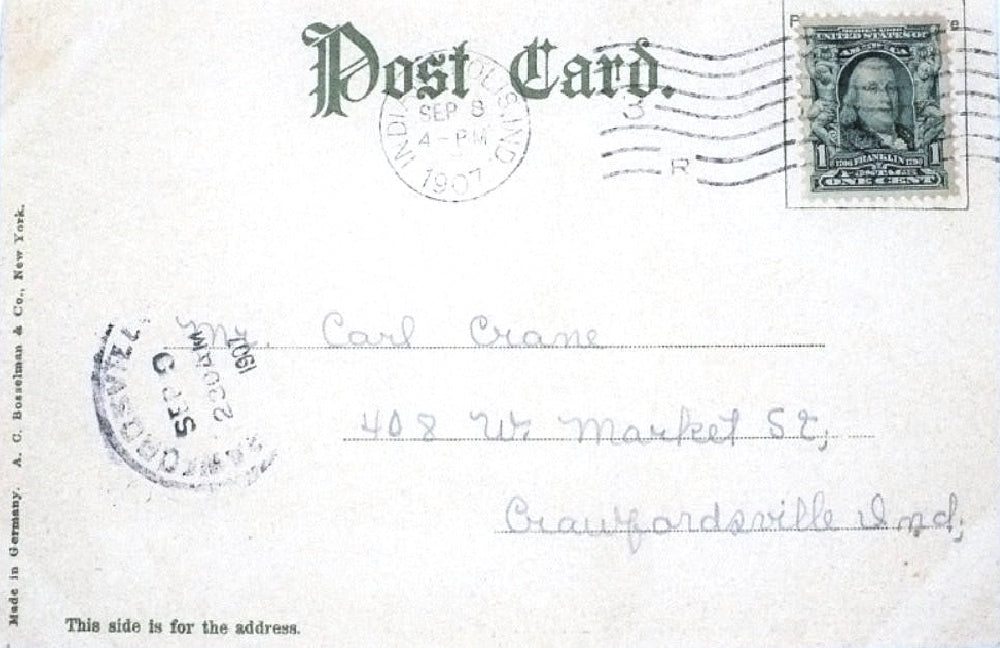 Post Card.
INDIANAPOLIS, IND.
SEP 8
4-PM
1907
3
R
UNITED STATES OF
AMERICA
1 1706 FRANKLIN 1790 1
POSTAGE
ONE CENT
Mr. Carl Crane
408 W. Market St,
Crawfordsville Ind,
SEP 9
1907
Made in Germany. A. C. Bosselman & Co., New York.
This side is for the address.